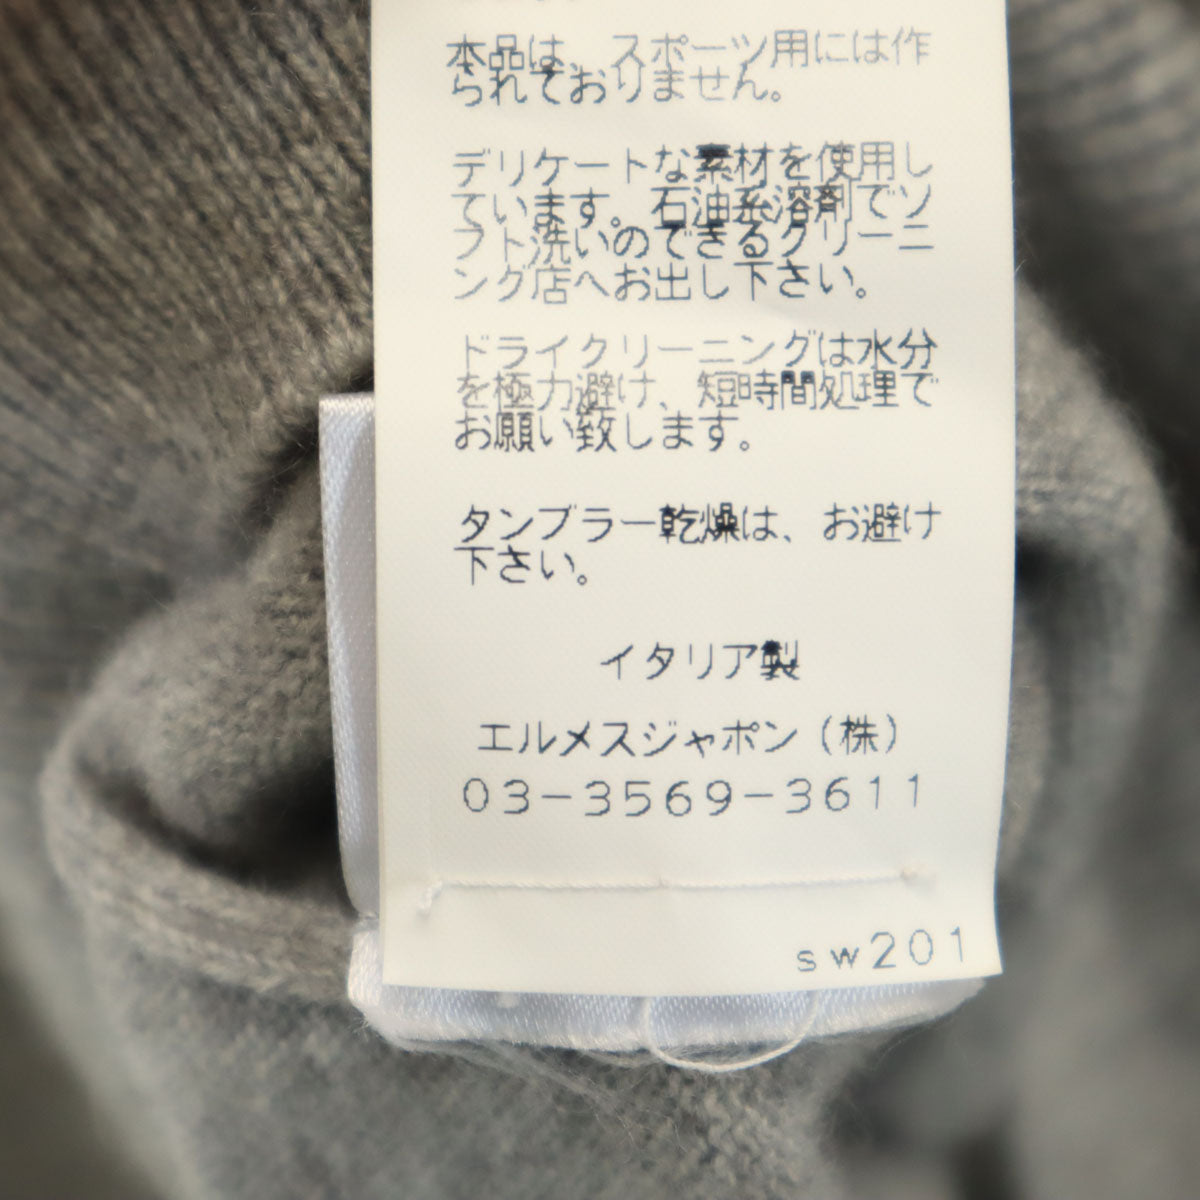 本品は、スポーツ用には作
られておりません。
デリケートな素材を使用し
ています。石油系溶剤でソ
フト洗いのできるクリーニ
ング店へお出し下さい。
ドライクリーニングは水分
を極力避け、短時間処理で
お願い致します。
タンブラー乾燥は、お避け
下さい。
イタリア製
エルメスジャポン(株)
03-3569-3611
sw201